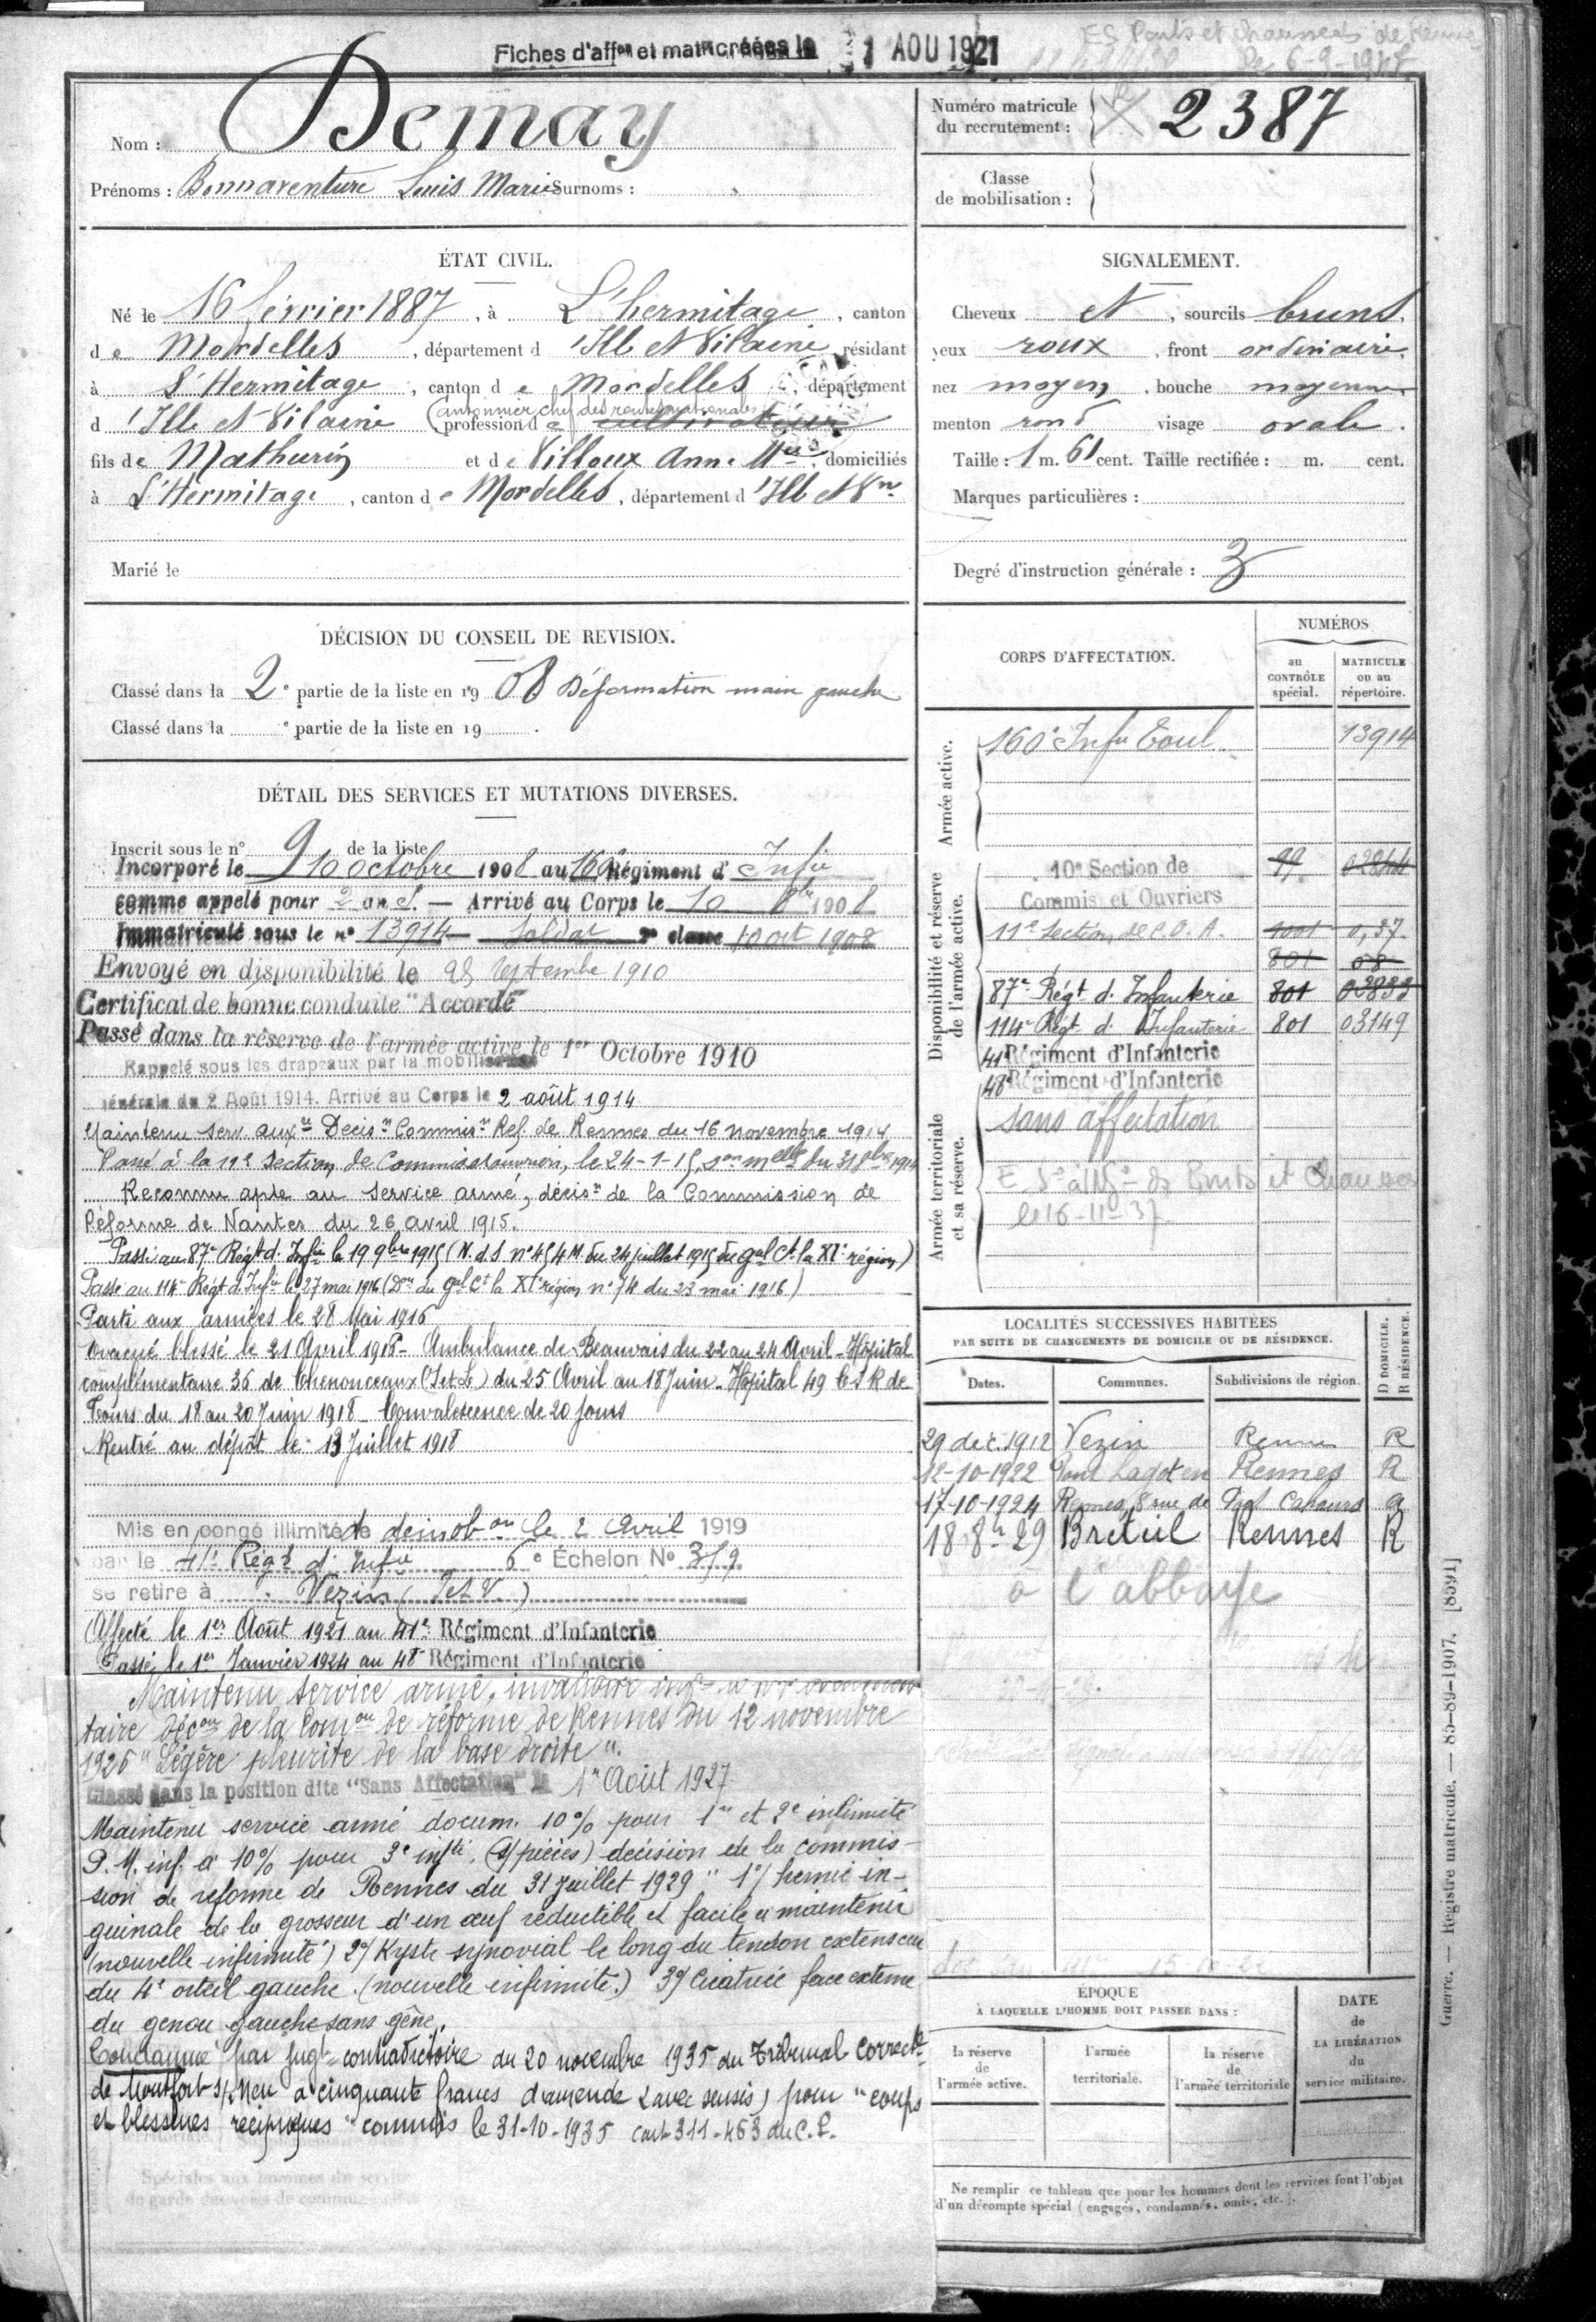 Fiches d'aff<sup>on</sup> et mat<sup>le</sup> créées le 1 AOU 1921
ES Ponts et Chaussées de Rennes
le 6-9-1927
Nom : Demay
Prénoms : Bonnaventure Louis Marie Surnoms :
Numéro matricule du recrutement : 2387
Classe de mobilisation :
ÉTAT CIVIL.
Né le 16 février 1887, à L'hermitage, canton
de Mordelles, département d'Ille et Vilaine, résidant
à L'Hermitage, canton de Mordelles, département
d'Ille et Vilaine, profession de cultivateur
Cantonnier chef des routes nationales
fils de Mathurin et de Villoux Anne Mie, domiciliés
à L'Hermitage, canton de Mordelles, département d'Ille et Vne
Marié le
SIGNALEMENT.
Cheveux et, sourcils bruns,
yeux roux, front ordinaire,
nez moyen, bouche moyenne,
menton rond visage ovale.
Taille : 1 m. 61 cent. Taille rectifiée : m. cent.
Marques particulières :
Degré d'instruction générale : 3
DÉCISION DU CONSEIL DE REVISION.
Classé dans la 2e partie de la liste en 1908 Déformation main gauche
Classé dans la e partie de la liste en 19 .
DÉTAIL DES SERVICES ET MUTATIONS DIVERSES.
Inscrit sous le n° 9 de la liste
Incorporé le 10 octobre 1908 au 160 Régiment d'Infie
comme appelé pour 2 ans. — Arrivé au Corps le 10 8bre 1908
Immatriculé sous le n° 13914 — Soldat 2e classe 10 oct 1908
Envoyé en disponibilité le 25 septembre 1910
Certificat de bonne conduite "Accordé"
Passé dans la réserve de l'armée active le 1er Octobre 1910
Rappelé sous les drapeaux par la mobilisation
générale du 2 Août 1914. Arrivé au Corps le 2 août 1914
Maintenu serv. auxre Décisn Commisn Ref. de Rennes du 16 novembre 1914
Passé à la 11e Section de Commis et ouvriers, le 24-1-15, son melle du 31 Xbre 1914
Reconnu apte au service armé, décisn de la Commission de
Réforme de Nantes du 26 avril 1915.
Passé au 87e Régt d'Infie le 19 9bre 1915 (N.d.S. n° 454 M. du 24 juillet 1915 du gal Ct la XIe région)
Passé au 114e Régt d'Infie le 27 mai 1916 (Don du gal Ct la XIe région n° 74 du 23 mai 1916)
Parti aux armées le 28 Mai 1916
Evacué blessé le 21 Avril 1918 - Ambulance de Beauvais du 22 au 24 Avril - Hôpital
complémentaire 36 de Chenonceaux (I et L) du 25 Avril au 18 Juin. Hôpital 49 C.S.R de
Tours du 18 au 20 Juin 1918 - Convalescence de 20 jours
Rentré au dépôt le 13 Juillet 1918
Mis en congé illimité de démobon le 2 Avril 1919
par le 41e Régt d'Infie 6e Échelon No 359
se retire à Vezin (I et V.)
Affecté le 1er Août 1921 au 41e Régiment d'Infanterie
Passé le 1er Janvier 1924 au 48e Régiment d'Infanterie
Maintenu service armé, invalidité infre à
taire déc on de la Comon de réforme de Rennes du 12 novembre
1925 "Légère pleurite de la base droite".
Classé dans la position dite "Sans Affectation" le 1er Août 1927
Maintenu service armé docum. 10% pour 1re et 2e infirmité
P.M. inf. à 10% pour 3e infté, (pièces) décision de la commis-
sion de réforme de Rennes du 31 juillet 1929 " 1°/ hernie in-
guinale de la grosseur d'un œuf réductible et facile à maintenir
(nouvelle infirmité) 2°/ Kyste synovial le long du tendon extenseur
du 4e orteil gauche. (nouvelle infirmité.) 3°/ Cicatrice face externe
du genou gauche sans gêne.
Condamné par jugt contradictoire du 20 novembre 1935 du Tribunal correctel
de Montfort s/ Meu à cinquante francs d'amende (avec sursis) pour "coups
et blessures réciproques" commis le 31-10-1935 art 311-463 du C.P.
Spéciales aux hommes du service
de garde des voies de commu
CORPS D'AFFECTATION.
NUMÉROS
au CONTRÔLE spécial.
MATRICULE ou au répertoire.
Armée active.
160e Infie Toul 13914
Disponibilité et réserve de l'armée active.
10e Section de Commis et Ouvriers 99 02844
11e Section de C.O.A. 1001 0,37
801 08
87e Régt d'Infanterie 801 02833
114e Régt d'Infanterie 801 03149
41e Régiment d'Infanterie
48e Régiment d'Infanterie
Armée territoriale et sa réserve.
sans affectation
Ponts et Chaussées
le 16-11-37
LOCALITÉS SUCCESSIVES HABITÉES
PAR SUITE DE CHANGEMENTS DE DOMICILE OU DE RÉSIDENCE.
Dates. Communes. Subdivisions de région. D DOMICILE. R RÉSIDENCE.
29 déc. 1912 Vezin Rennes R
12-10-1922 Pont Lagot en Rennes R
17-10-1924 Rennes, 8 rue de
18 8bre 29 Breteil Rennes R
à l'abbaye
ÉPOQUE
À LAQUELLE L'HOMME DOIT PASSER DANS :
la réserve de l'armée active.
l'armée territoriale.
la réserve de l'armée territoriale
DATE de LA LIBÉRATION du service militaire.
Ne remplir ce tableau que pour les hommes dont les services font l'objet
d'un décompte spécial (engagés, condamnés, omis, etc.).
Guerre. — Registre matricule. — 85-89-1907. [8591]